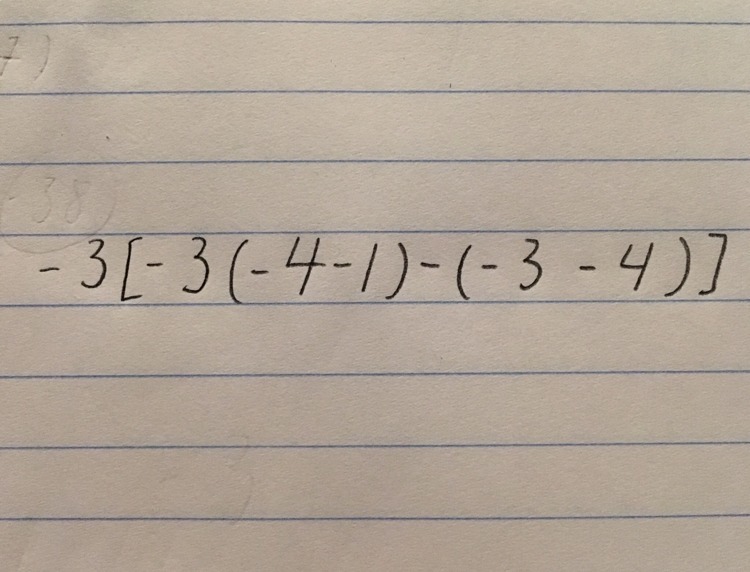 7)
38
-3[-3(-4-1)-(-3 -4)]